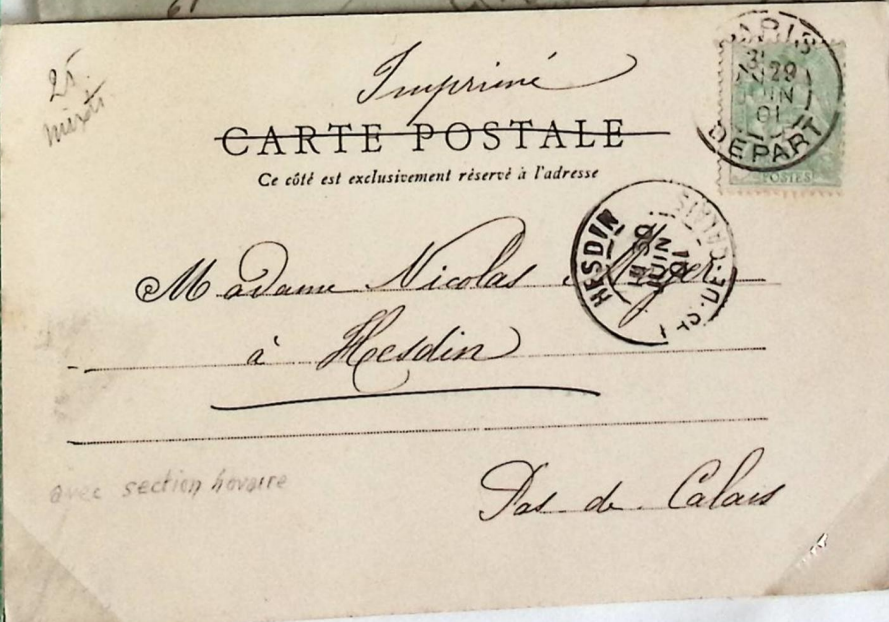 25.
Imprimé
CARTE POSTALE
Ce côté est exclusivement réservé à l'adresse
PARIS
29
JUIN
01
DÉPART
POSTES
HESDIN
30
JUIN
01
PAS-DE-CALAIS
Madame Nicolas
à Hesdin
avec section horaire
Pas de Calais